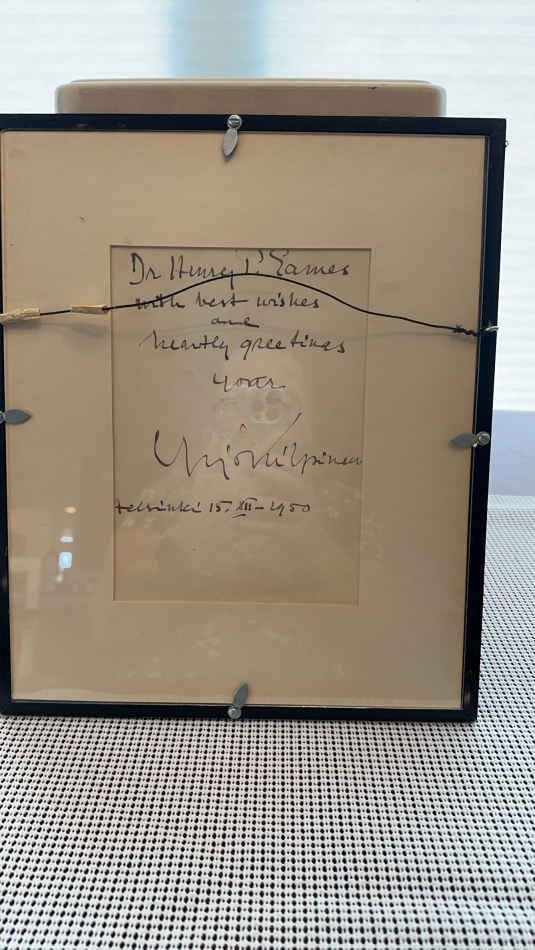 Dr Henry P. Eames
with best wishes
and
heartly greetings
your
Yrjö Kilpinen
Helsinki 15. XII - 1950